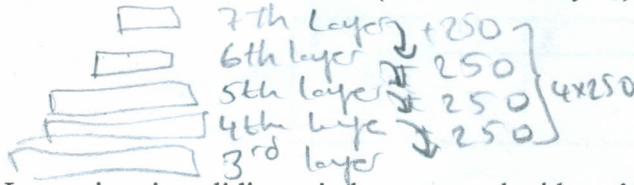 7th Layer +250
6th layer 250
5th layer 250
4th laye 250
3rd layer
4x250